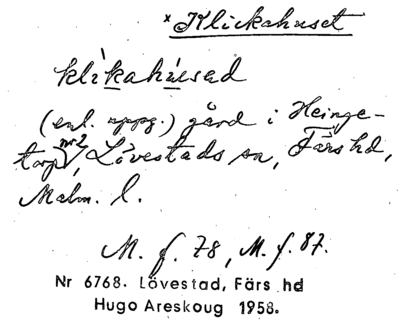 × Klickahuset
klìkahúsəd
(enl. uppg.) gård i Heinge-
torp nr 2, Lövestads sn, Färs hd,
Malm. l.
M. f. 78, M. f. 87.
Nr 6768. Lövestad, Färs hd
Hugo Areskoug 1958.